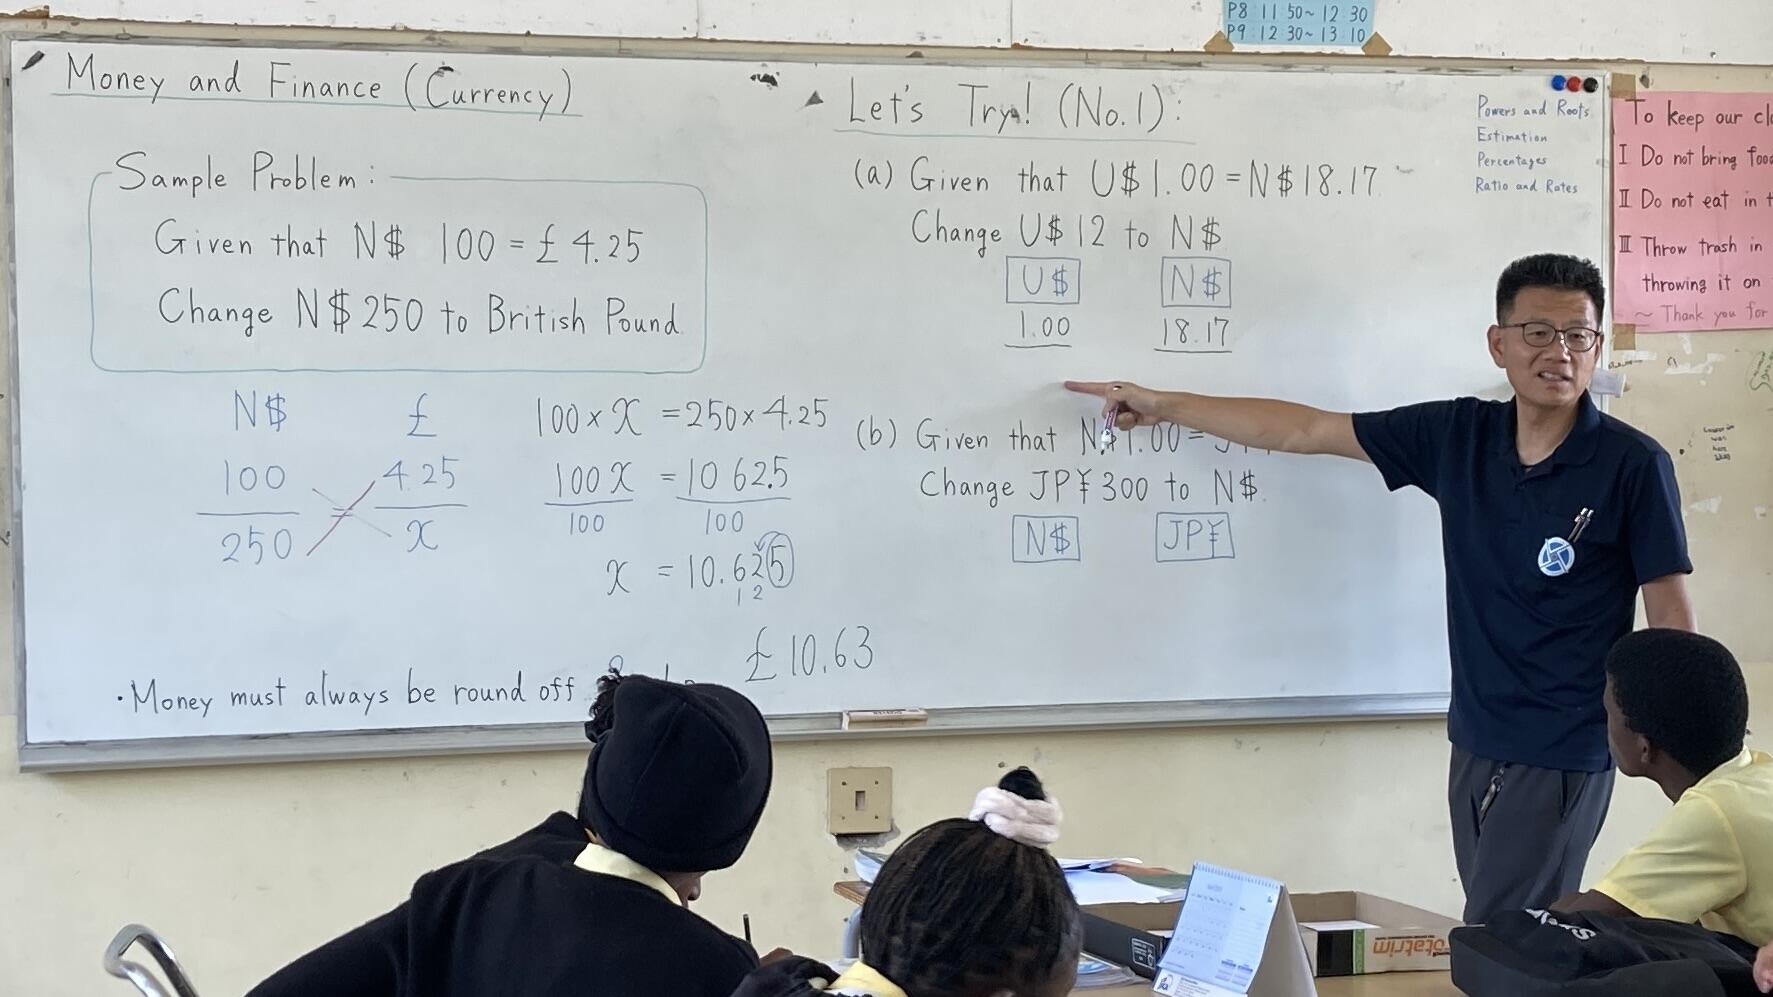 P8:11 50~12:30
P9:12 30~13:10
Money and Finance (Currency)
Sample Problem:
Given that N$ 100 = £ 4.25
Change N$ 250 to British Pound
N$ £
100 4.25
=
250 x
100 × x = 250 × 4.25
100 x = 1062.5
100 100
x = 10.625
1 2
£ 10.63
· Money must always be round off
Let's Try! (No.1):
(a) Given that U$ 1.00 = N$ 18.17
Change U$ 12 to N$
U$ N$
1.00 18.17
(b) Given that N$ 1.00 =
Change JP¥ 300 to N$.
N$ JP¥
Powers and Roots
Estimation
Percentages
Ratio and Rates
To keep our
I Do not bring
II Do not eat in
III Throw trash in
throwing it on
~ Thank you for
rotatrim